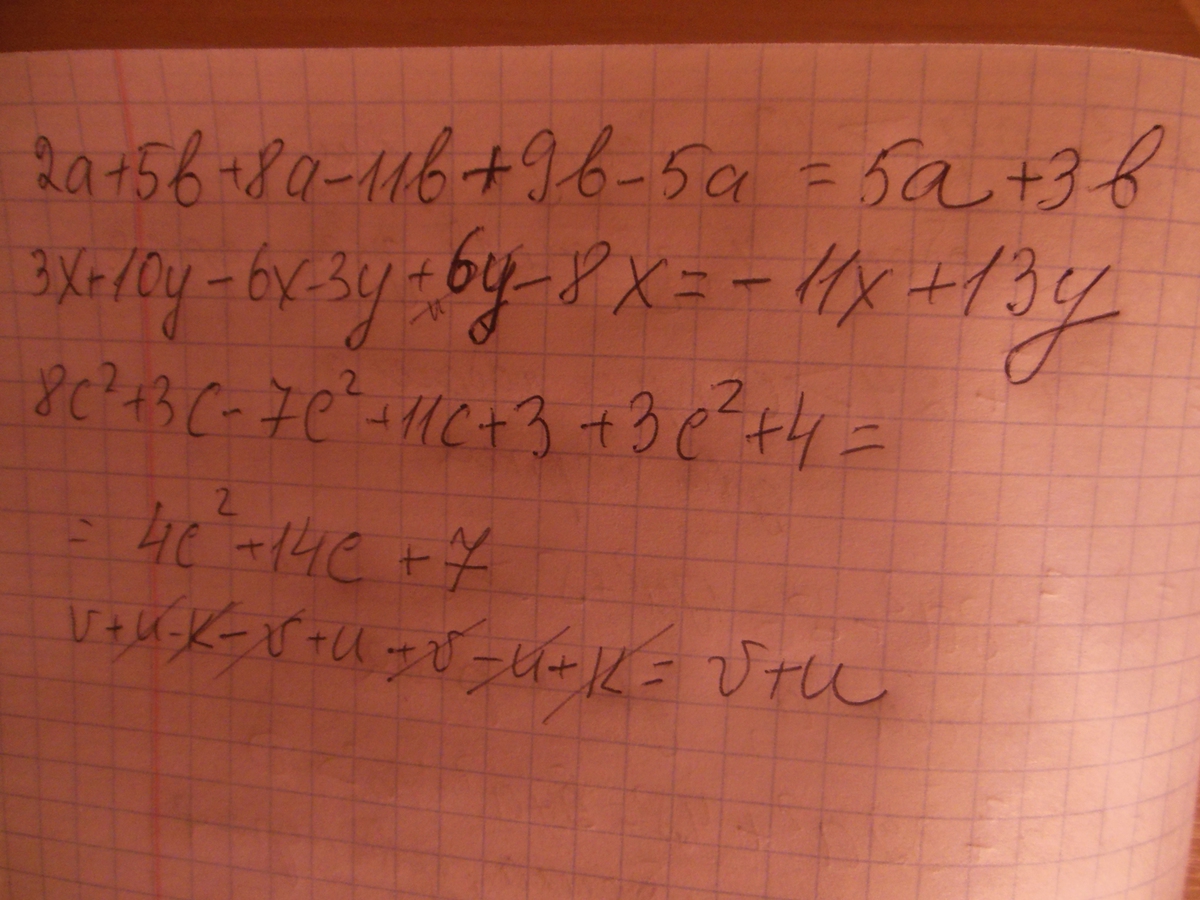 2a+5b+8a-11b+9b-5a = 5a+3b
3x+10y-6x-3y+6y-8x=-11x+13y
8c²+3c-7c²+11c+3+3c²+4=
= 4c²+14c+7
v+u-k-v+u+v-u+k= v+u